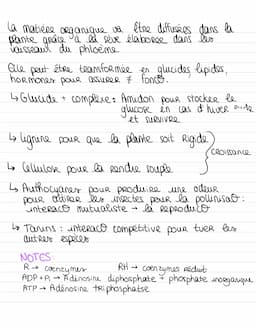 La matière organique va être diffusée dans la
plante grâce à la sève élaborée dans les
vaisseaux du phloème.
Elle peut être transformée en glucides, lipides,
hormones pour assurer ≠ fonct°.
↳ Glucide + complexe : Amidon pour stocker le
glucose en cas d'hiver
et survivre
↳ Lignine pour que la plante soit rigide
croissance
↳ Cellulose pour la rendre souple
↳ Anthocyanes pour produire une odeur
pour attirer les insectes pour la pollinisat° :
interact° mutualiste → la reproduct°
↳ Tanins : interact° compétitive pour tuer les
autres espèces
NOTES :
R → coenzymes RH → coenzymes réduit
ADP + Pi → Adénosine diphosphate + phosphate inorganique
ATP → Adénosine triphosphatse